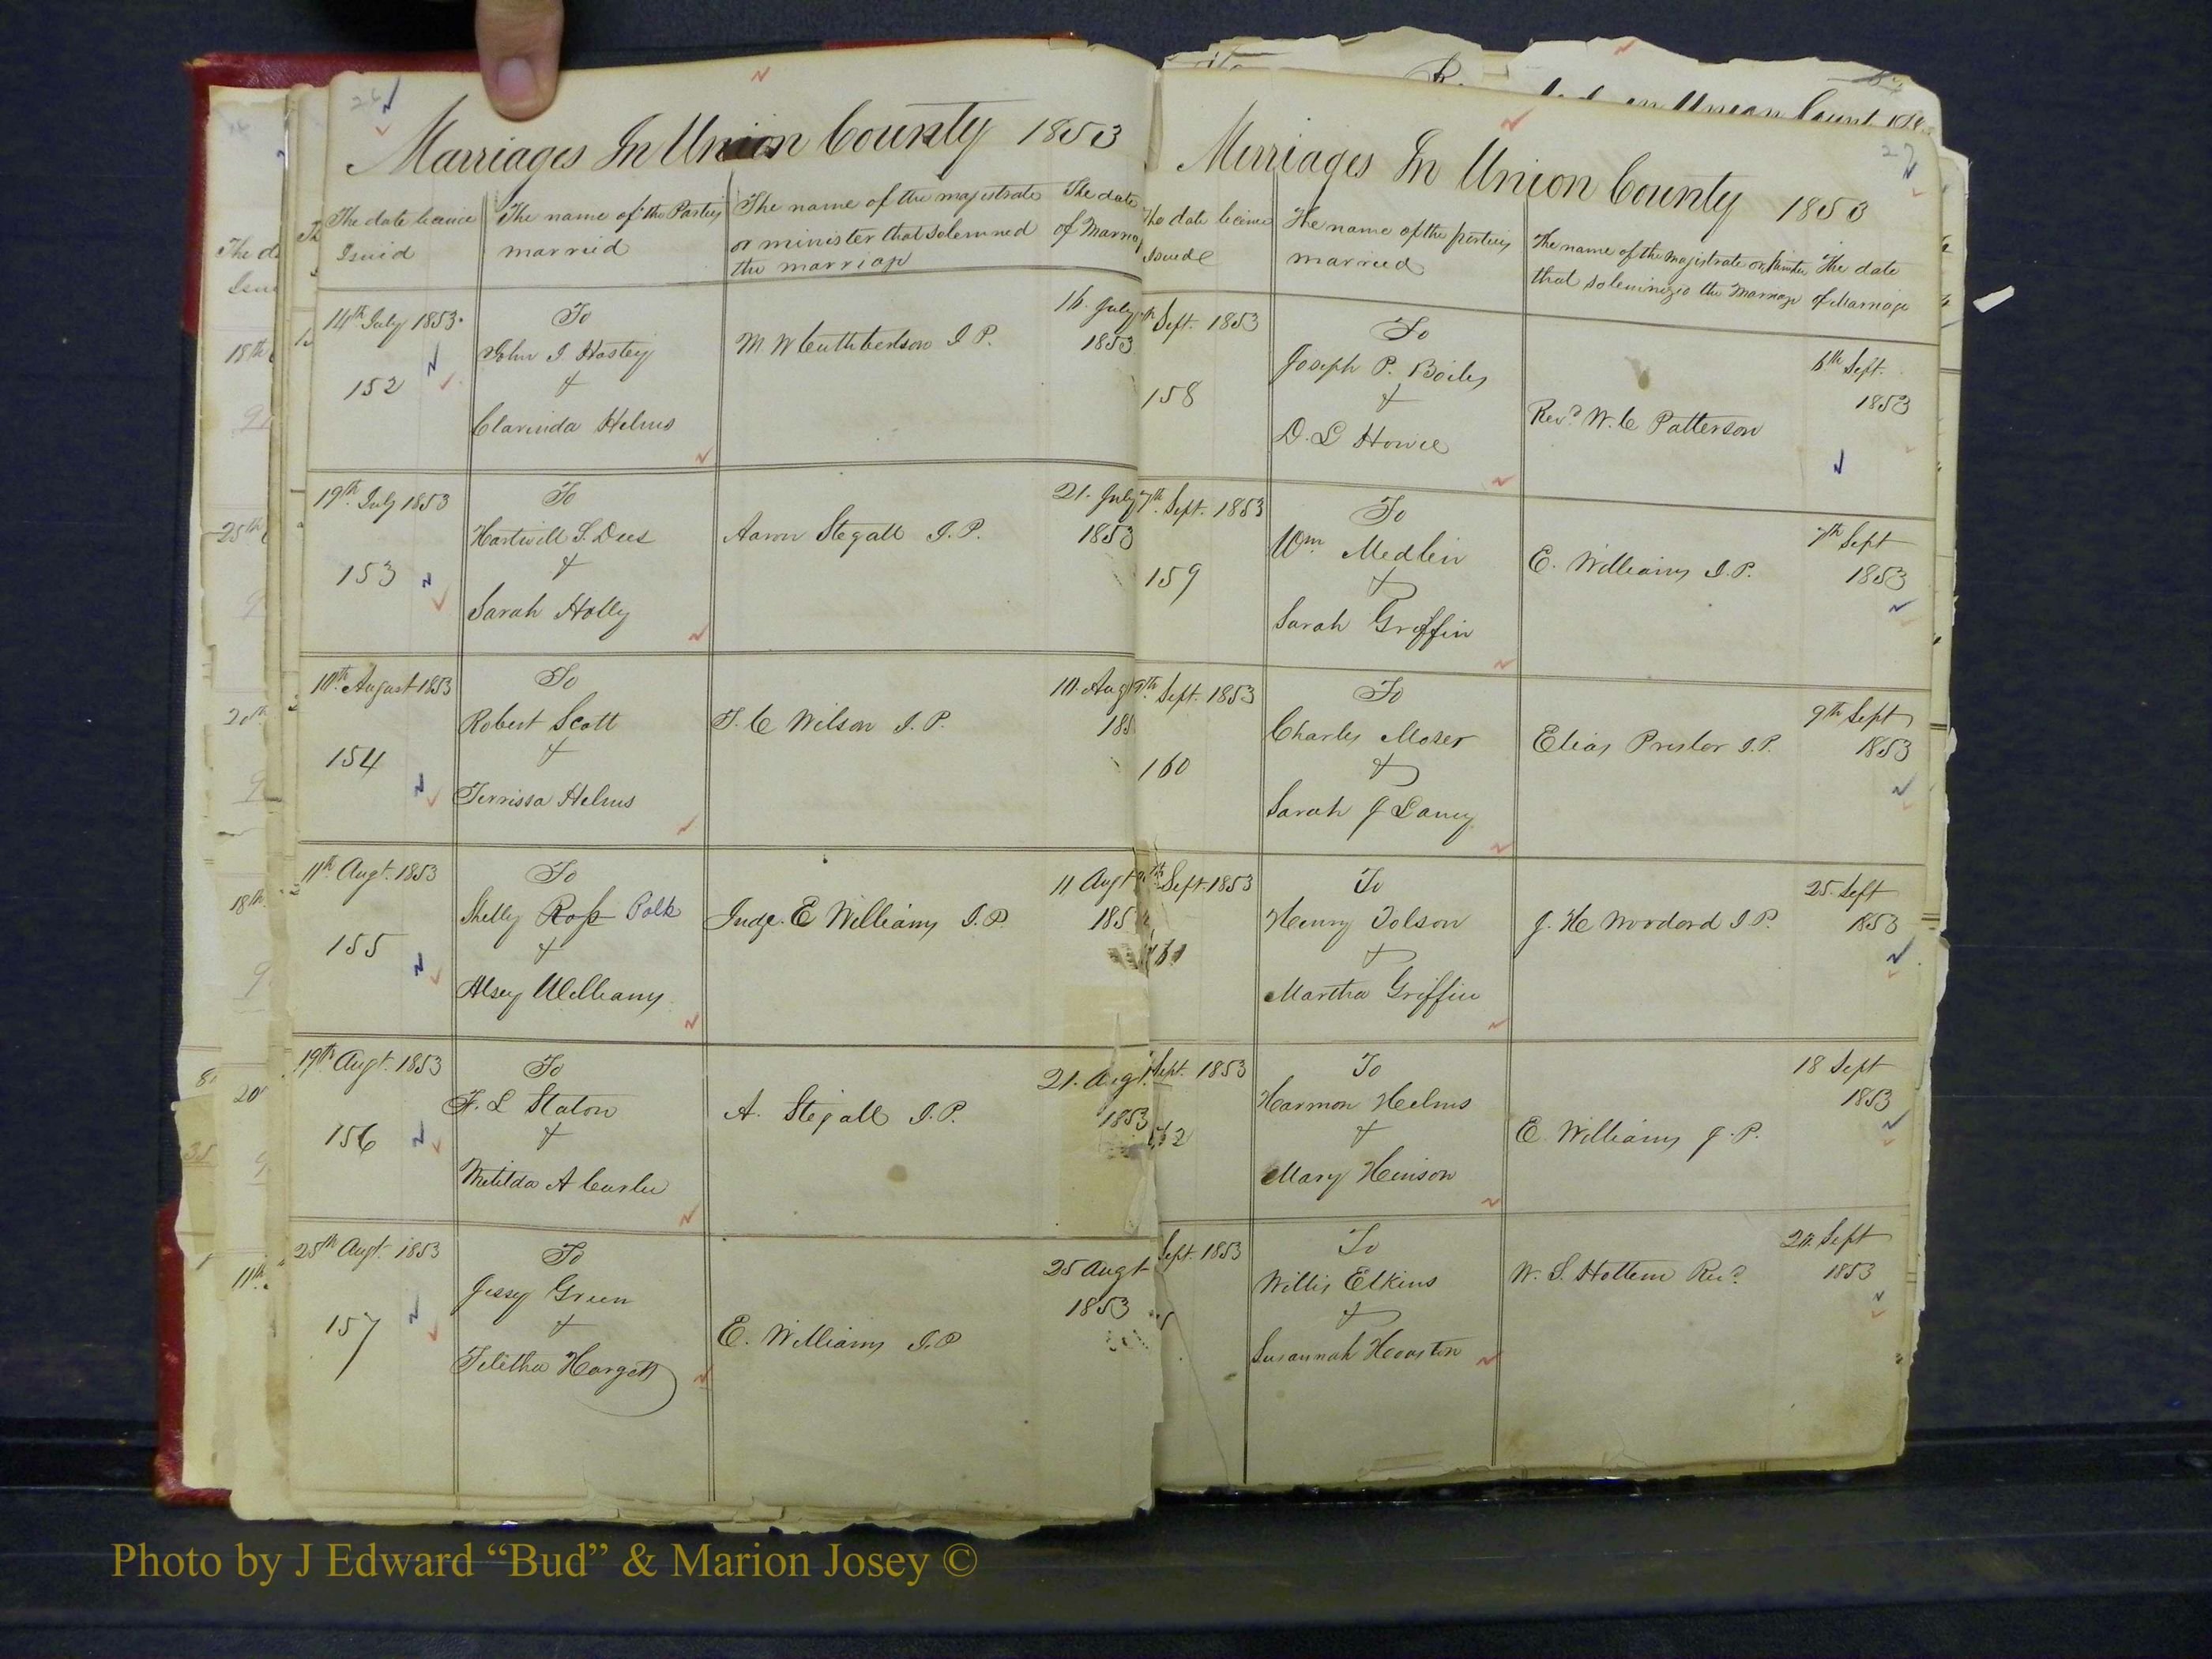 26
Marriages In Union County 1853
The date licence
Issuid
The name of the Parties
married
The name of the majestrate
or minister that solemned
the marriage
The date
of Marriag
14th July 1853.
152
To
John I Hastey
&
Clarinda Helms
M. W Cuthbertson J. P.
16. July
1853
19th July 1853
153
To
Hartwell S. Dees
&
Sarah Holly
Aaron Stegall J. P.
21. July
1853
10th August 1853
154
To
Robert Scott
&
Terrissa Helms
T. C Wilson J. P.
10. Aug
185
11th Augt. 1853
155
To
Shelly Ross Polk
&
Alsey Williams
E Williams J. P.
11 Augt
185
19th Augt. 1853
156
To
F. L Staton
&
Matilda A
A. Stegall J. P.
21. Augt.
1853
25th Augt. 1853
157
To
Jessy Green
&
Telitha Hargett
E. Williams J. P
25 Augt
1853
27
Marriages In Union County 1853
The date licence
Issued
The name of the parties
married
The name of the Majistrate or Minister
that solemnized the Marriage
The date
of Marriage
Sept. 1853
158
To
Joseph P. Boiles
&
D. L Howie
Revd. W. C Patterson
6th Sept.
1853
7th. Sept. 1853
159
To
Wm Medlin
&
Sarah Griffin
E. Williams J. P.
7th Sept
1853
9th. Sept. 1853
160
To
Charles Moser
&
Sarah J Laney
Elias Preslar J. P.
9th Sept
1853
Sept. 1853
161
To
Henry Tolson
&
Martha Griffin
J. H Woodard J P.
25. Sept
1853
Sept. 1853
162
To
Harmon Helms
&
Mary Hinson
E. Williams J. P.
18 Sept
1853
Sept. 1853
To
Willis Elkins
&
Susannah Houston
W. S. Hottem Revd.
20. Sept
1853
Photo by J Edward “Bud” & Marion Josey ©